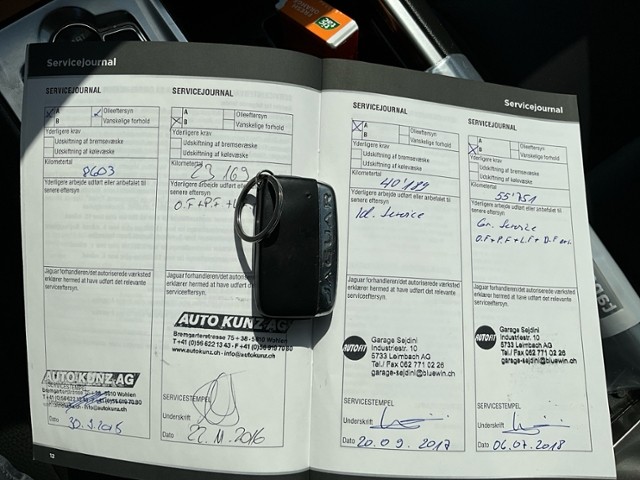 tic tac
Servicejournal
SERVICEJOURNAL
A
B
Olieeftersyn
Vanskelige forhold
Yderligere krav
Udskiftning af bremsevæske
Udskiftning af kølevæske
Kilometertal
8603
Yderligere arbejde udført eller anbefalet til
senere eftersyn
Jaguar forhandleren/det autoriserede værksted
erklærer hermed at have udført det relevante
serviceeftersyn.
AUTO KUNZ AG
Dato
30.9.2015
12
SERVICEJOURNAL
A
B
Olieeftersyn
Vanskelige forhold
Yderligere krav
Udskiftning af bremsevæske
Udskiftning af kølevæske
Kilometertal
23 169
Yderligere arbejde udført eller anbefalet til
senere eftersyn
O.F+P.F+L
JAGUAR
Jaguar forhandleren/det autoriseret
erklærer hermed at have udført det
serviceeftersyn.
AUTO KUNZ AG
Bremgarterstrasse 75 + 38 - 5610 Wohlen
T+41 (0)56 622 13 43 - F+41 (0)56 619 70 80
www.autokunz.ch - info@autokunz.ch
SERVICESTEMPEL
Underskrift
Dato
22.11.2016
Servicejournal
SERVICEJOURNAL
A
B
Olieeftersyn
Vanskelige forhold
Yderligere krav
Udskiftning af bremsevæske
Udskiftning af kølevæske
Kilometertal
40'189
Yderligere arbejde udført eller anbefalet til
senere eftersyn
Service
Jaguar forhandleren/det autoriserede værksted
erklærer hermed at have udført det relevante
serviceeftersyn.
AUTOFIT
Garage Sejdini
Industriestr. 10
5733 Leimbach AG
Tel./ Fax 062 771 02 26
garage-sejdini@bluewin.ch
SERVICESTEMPEL
Underskrift
Dato
20.09.2017
SERVICEJOURNAL
A
B
Olieeftersyn
Vanskelige forhold
Yderligere krav
Udskiftning af bremsevæske
Udskiftning af kølevæske
Kilometertal
55'751
Yderligere arbejde udført eller anbefalet til
senere eftersyn
Service
O.F+P.F+L.F+
Jaguar forhandleren/det autoriserede værksted
erklærer hermed at have udført det relevante
serviceeftersyn.
AUTOFIT
Garage Sejdini
Industriestr. 10
5733 Leimbach AG
Tel./ Fax 062 771 02 26
garage-sejdini@bluewin.ch
SERVICESTEMPEL
Underskrift
Dato
06.07.2018